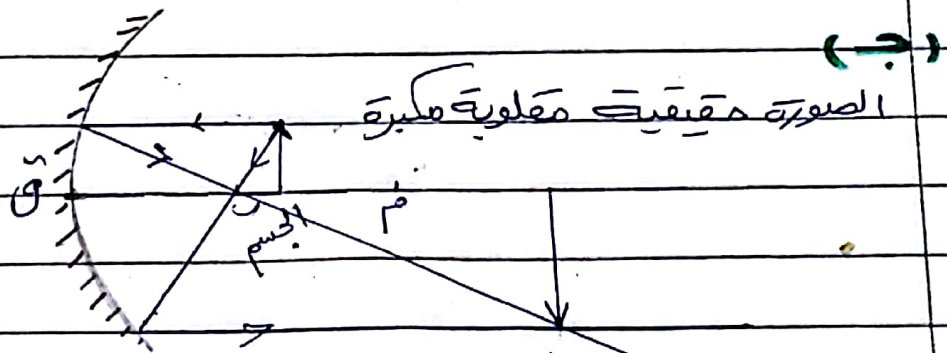 (ج)
الصورة حقيقية مقلوبة مكبرة
ق
ب
الجسم
م